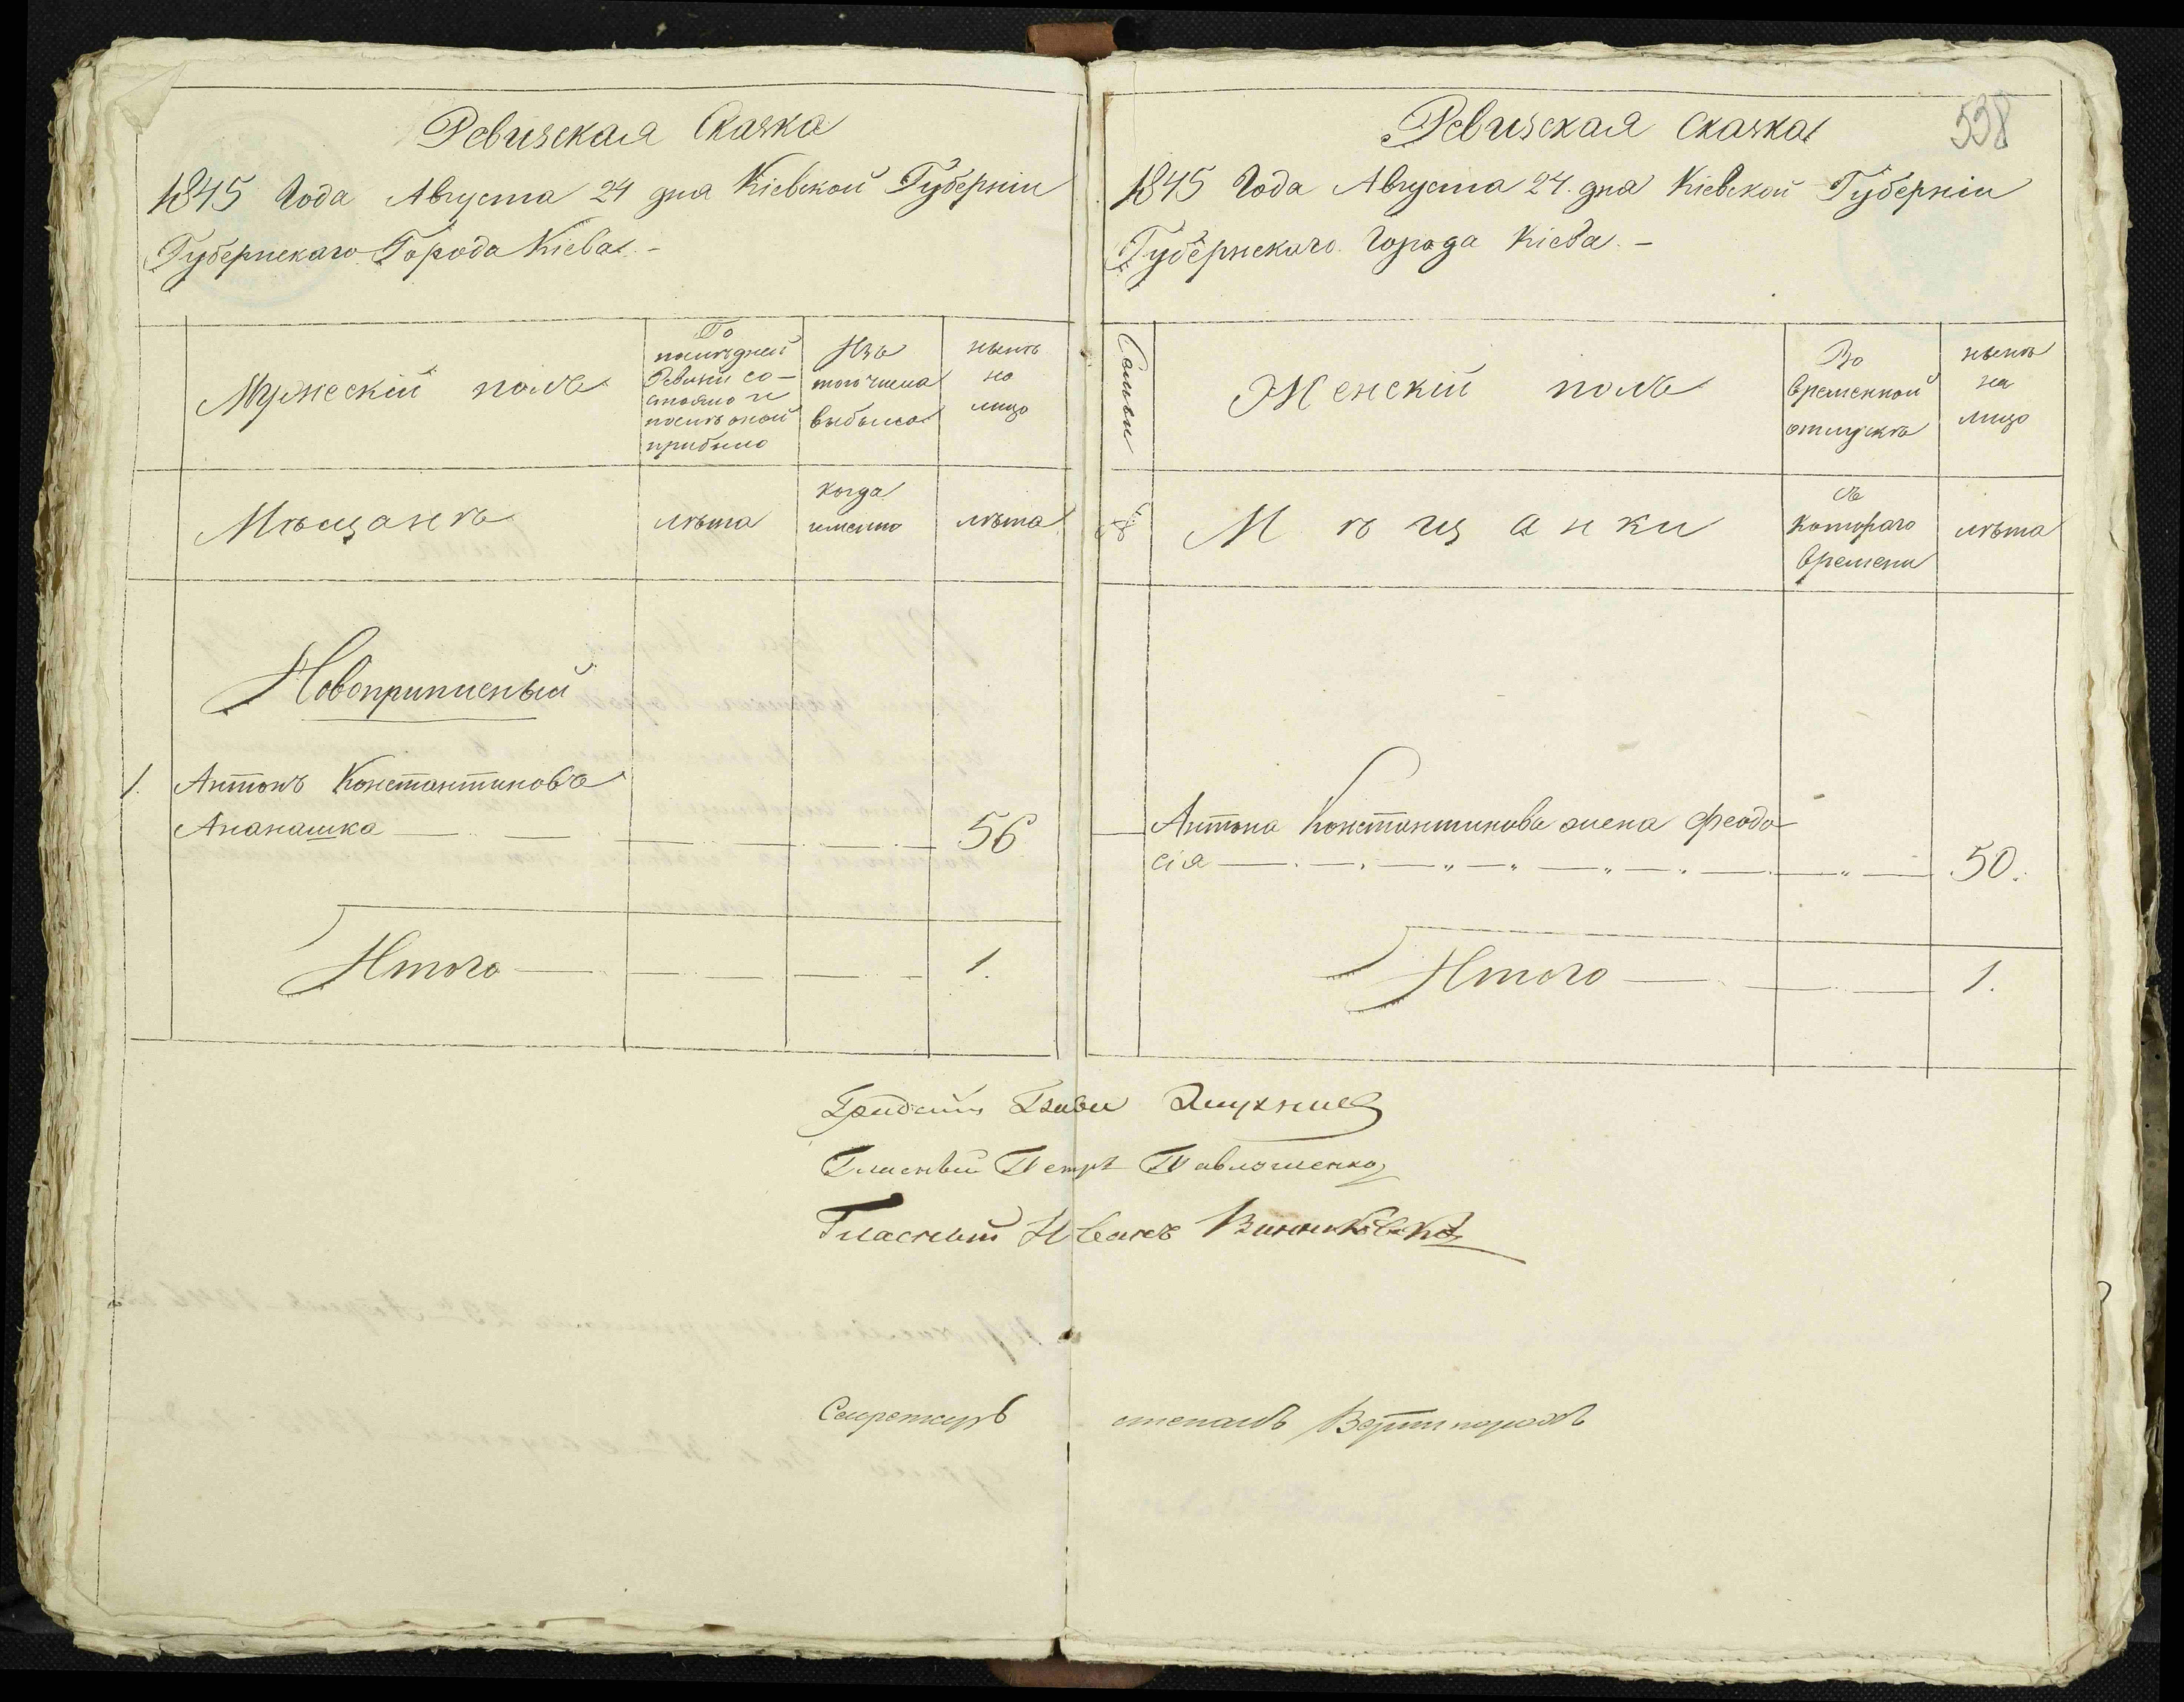 Ревизская Сказка
1845 Года Августа 24 дня Кіевской Губерніи
Губернскаго Города Кіева. -
Мужескій полъ
По
последней
Ревизіи со-
стояло и
послѣ оной
прибыло
Изъ
того числа
выбыло
нынѣ
на
лицо
Мѣщанъ
лѣта
когда
именно
лѣта
Новоприписный
1. Антонъ Константиновъ
Ананашка 56
Итого 1.
538
Ревизская сказка
1845 Года Августа 24. дня Кіевской Губерніи
Губернскаго Города Кіева. -
Семьи
Женскій полъ
Во
временной
отлучкѣ
нынѣ
на
лицо
№
Мѣщанки
съ
котораго
времени
лѣта
Антона Константинова жена Феодо
сія 50.
Итого 1.
Гласный Петръ Павлошенко
Гласный Иванъ
Секретарь степанъ